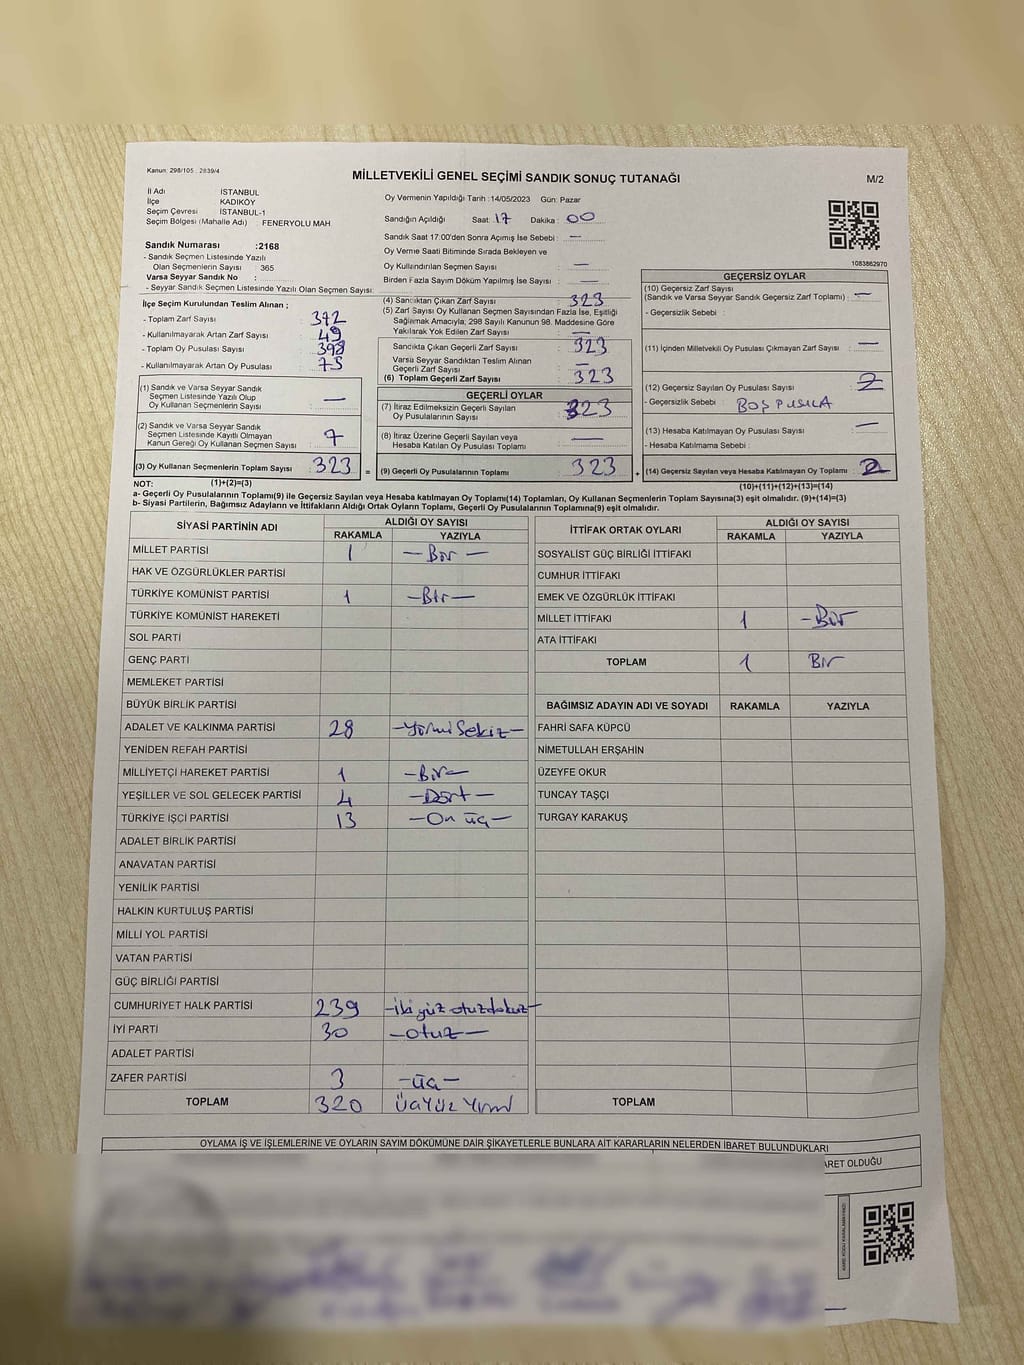 Kanun: 298/105 : 2839/4
MİLLETVEKİLİ GENEL SEÇİMİ SANDIK SONUÇ TUTANAĞI
M/2
İl Adı İSTANBUL
İlçe KADIKÖY
Seçim Çevresi İSTANBUL-1
Seçim Bölgesi (Mahalle Adı) : FENERYOLU MAH
Sandık Numarası :2168
- Sandık Seçmen Listesinde Yazılı
Olan Seçmenlerin Sayısı : 365
Varsa Seyyar Sandık No :
- Seyyar Seçmen Listesinde Yazılı Olan Seçmen Sayısı:
Oy Vermenin Yapıldığı Tarih :14/05/2023 Gün: Pazar
Sandığın Açıldığı Saat: 17 Dakika : 00
Sandık Saat 17:00'den Sonra Açımış İse Sebebi : —
Oy Verme Saati Bitiminde Sırada Bekleyen ve
Oy Kullandırılan Seçmen Sayısı : —
Birden Fazla Sayım Döküm Yapılmış İse Sayısı : —
1083862970
İlçe Seçim Kurulundan Teslim Alınan ;
- Toplam Zarf Sayısı : 372
- Kullanılmayarak Artan Zarf Sayısı : 49
- Toplam Oy Pusulası Sayısı : 398
- Kullanılmayarak Artan Oy Pusulası : 75
(1) Sandık ve Varsa Seyyar Sandık
Seçmen Listesinde Yazılı Olup
Oy Kullanan Seçmenlerin Sayısı : —
(2) Sandık ve Varsa Seyyar Sandık
Seçmen Listesinde Kayıtlı Olmayan
Kanun Gereği Oy Kullanan Seçmen Sayısı : 7
(3) Oy Kullanan Seçmenlerin Toplam Sayısı : 323 =
(4) Sandıktan Çıkan Zarf Sayısı : 323
(5) Zarf Sayısı Oy Kullanan Seçmen Sayısından Fazla İse, Eşitliği
Sağlamak Amacıyla, 298 Sayılı Kanunun 98. Maddesine Göre
Yakılarak Yok Edilen Zarf Sayısı : —
Sandıkta Çıkan Geçerli Zarf Sayısı : 323
Varsa Seyyar Sandıktan Teslim Alınan
Geçerli Zarf Sayısı : —
(6) Toplam Geçerli Zarf Sayısı : 323
GEÇERLİ OYLAR
(7) İtiraz Edilmeksizin Geçerli Sayılan
Oy Pusulalarının Sayısı : 323
(8) İtiraz Üzerine Geçerli Sayılan veya
Hesaba Katılan Oy Pusulası Toplamı : —
(9) Geçerli Oy Pusulalarının Toplamı : 323 +
GEÇERSİZ OYLAR
(10) Geçersiz Zarf Sayısı
(Sandık ve Varsa Seyyar Sandık Geçersiz Zarf Toplamı) : —
- Geçersizlik Sebebi :
(11) İçinden Milletvekili Oy Pusulası Çıkmayan Zarf Sayısı : —
(12) Geçersiz Sayılan Oy Pusulası Sayısı : 2
- Geçersizlik Sebebi : BOŞ PUSULA
(13) Hesaba Katılmayan Oy Pusulası Sayısı : —
- Hesaba Katılmama Sebebi :
(14) Geçersiz Sayılan veya Hesaba Katılmayan Oy Toplamı : 2
NOT: (1)+(2)=(3)
(10)+(11)+(12)+(13)=(14)
a- Geçerli Oy Pusulalarının Toplamı(9) ile Geçersiz Sayılan veya Hesaba katılmayan Oy Toplamı(14) Toplamları, Oy Kullanan Seçmenlerin Toplam Sayısına(3) eşit olmalıdır. (9)+(14)=(3)
b- Siyasi Partilerin, Bağımsız Adayların ve İttifakların Aldığı Ortak Oyların Toplamı, Geçerli Oy Pusulalarının Toplamına(9) eşit olmalıdır.
SİYASİ PARTİNİN ADI ALDIĞI OY SAYISI
RAKAMLA YAZIYLA
MİLLET PARTİSİ 1 — Bir —
HAK VE ÖZGÜRLÜKLER PARTİSİ
TÜRKİYE KOMÜNİST PARTİSİ 1 — Bir —
TÜRKİYE KOMÜNİST HAREKETİ
SOL PARTİ
GENÇ PARTİ
MEMLEKET PARTİSİ
BÜYÜK BİRLİK PARTİSİ
ADALET VE KALKINMA PARTİSİ 28 — Yirmi Sekiz —
YENİDEN REFAH PARTİSİ
MİLLİYETÇİ HAREKET PARTİSİ 1 — Bir —
YEŞİLLER VE SOL GELECEK PARTİSİ 4 — Dört —
TÜRKİYE İŞÇİ PARTİSİ 13 — On üç —
ADALET BİRLİK PARTİSİ
ANAVATAN PARTİSİ
YENİLİK PARTİSİ
HALKIN KURTULUŞ PARTİSİ
MİLLİ YOL PARTİSİ
VATAN PARTİSİ
GÜÇ BİRLİĞİ PARTİSİ
CUMHURİYET HALK PARTİSİ 239 — iki yüz otuz dokuz —
İYİ PARTİ 30 — otuz —
ADALET PARTİSİ
ZAFER PARTİSİ 3 — üç —
TOPLAM 320 Üçyüz Yirmi
İTTİFAK ORTAK OYLARI ALDIĞI OY SAYISI
RAKAMLA YAZIYLA
SOSYALİST GÜÇ BİRLİĞİ İTTİFAKI
CUMHUR İTTİFAKI
EMEK VE ÖZGÜRLÜK İTTİFAKI
MİLLET İTTİFAKI 1 — Bir
ATA İTTİFAKI
TOPLAM 1 Bir
BAĞIMSIZ ADAYIN ADI VE SOYADI RAKAMLA YAZIYLA
FAHRİ SAFA KÜPCÜ
NİMETULLAH ERŞAHİN
ÜZEYFE OKUR
TUNCAY TAŞÇI
TURGAY KARAKUŞ
TOPLAM
OYLAMA İŞ VE İŞLEMLERİNE VE OYLARIN SAYIM DÖKÜMÜNE DAİR ŞİKAYETLERLE BUNLARA AİT KARARLARIN NELERDEN İBARET BULUNDUKLARI
ARET OLDUĞU